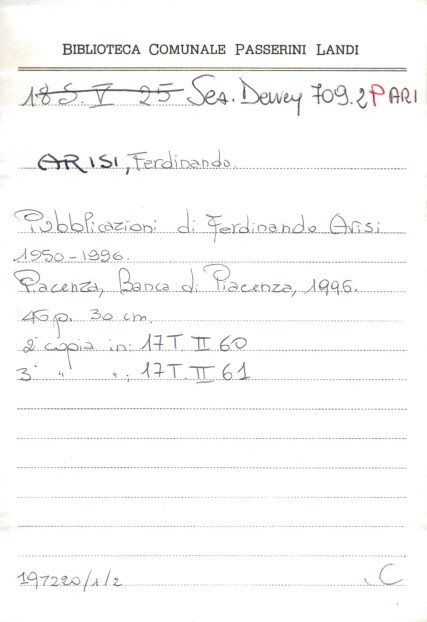 BIBLIOTECA COMUNALE PASSERINI LANDI
18 S. V 25 Sez. Dewey 709.2 P ARI
ARISI, Ferdinando.
Pubblicazioni di Ferdinando Arisi
1950-1996.
Piacenza, Banca di Piacenza, 1996.
45 p. 30 cm.
2ª copia in: 17 T. II 60
3ª " ": 17 T. II 61
197220/1/2 C